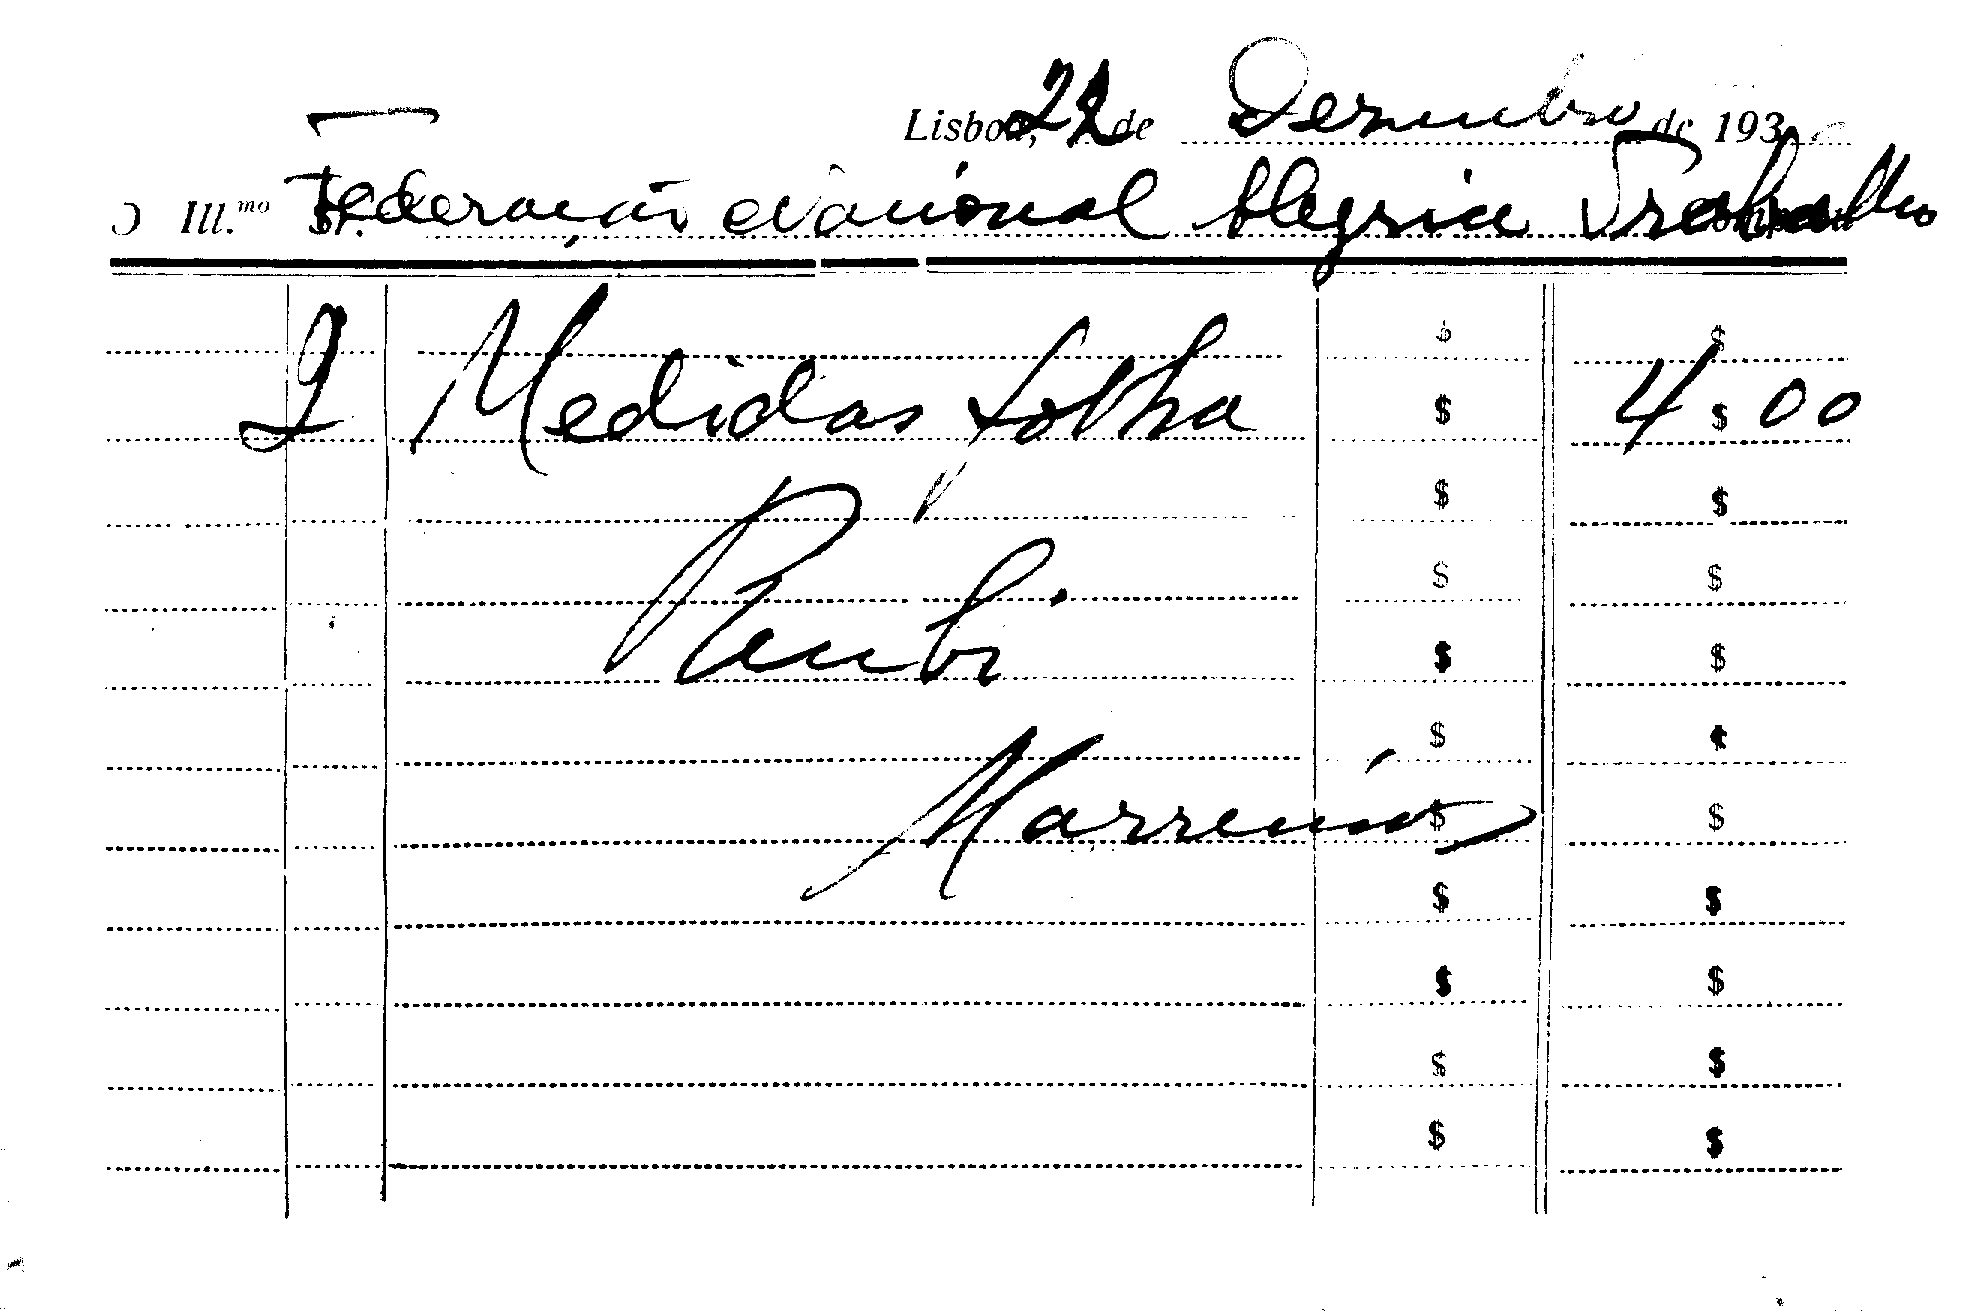 Lisboa, 22 de Dezembro de 193
O Ill.mo Sr. Federação Nacional Alegria Trabalho
$ $
2 Medidas folha $ 4$00
$ $
$ $
$ $
$ $
$ $
$ $
$ $
$ $
$ $